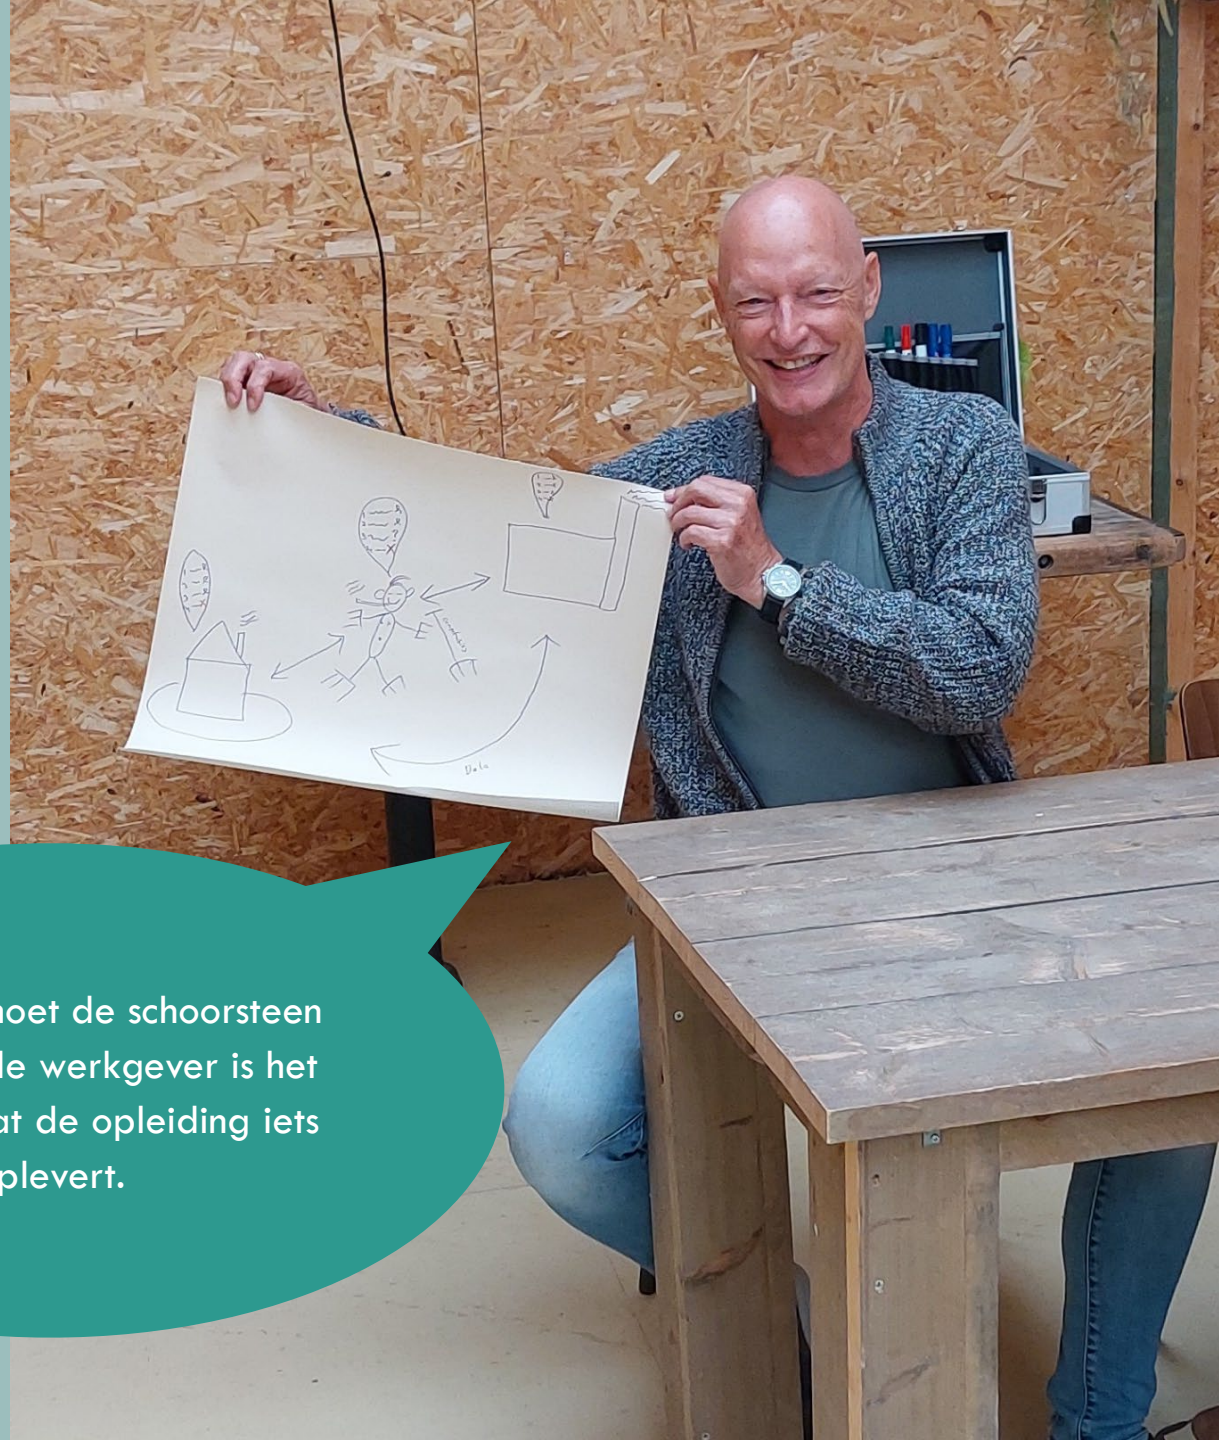 Data
moet de schoorsteen
de werkgever is het
at de opleiding iets
plevert.